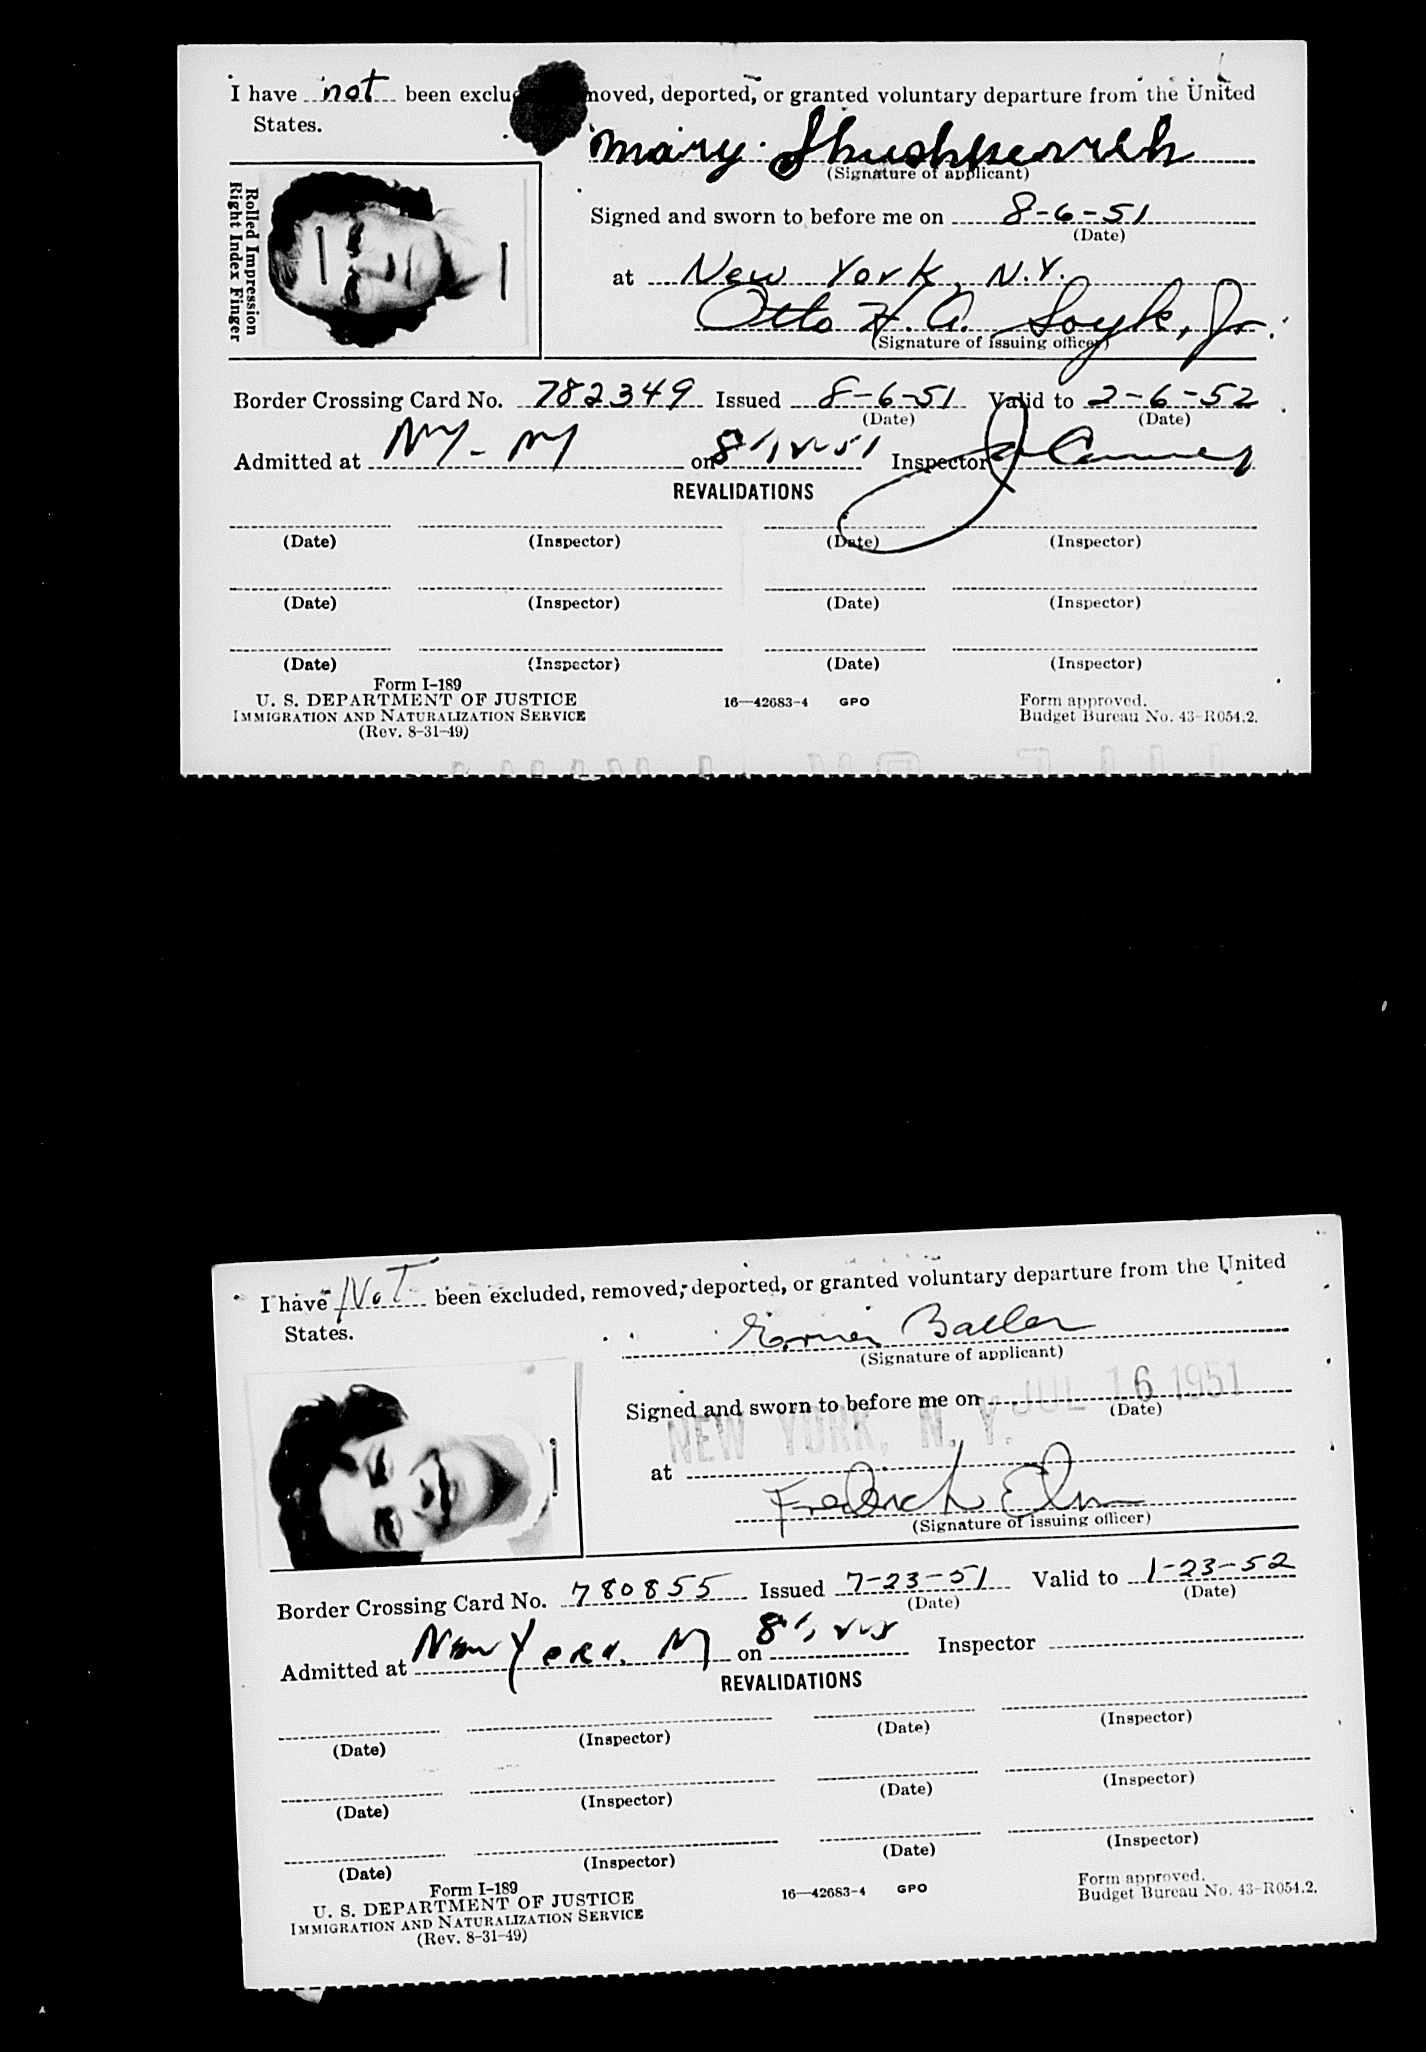 I have not been exclu moved, deported, or granted voluntary departure from the United
States.
Mary Shushkewich
(Signature of applicant)
Rolled Impression
Right Index Finger
Signed and sworn to before me on 8-6-51
(Date)
at New York, N.Y.
Otto H. A. Soyk, Jr.
(Signature of issuing officer)
Border Crossing Card No. 782349 Issued 8-6-51 Valid to 2-6-52
(Date) (Date)
Admitted at NY-NY on Inspector
REVALIDATIONS
(Date) (Inspector) (Date) (Inspector)
(Date) (Inspector) (Date) (Inspector)
(Date) (Inspector) (Date) (Inspector)
Form I-189
U. S. DEPARTMENT OF JUSTICE 16—42683-4 GPO Form approved.
IMMIGRATION AND NATURALIZATION SERVICE Budget Bureau No. 43-R054.2.
(Rev. 8-31-49)
I have Not been excluded, removed, deported, or granted voluntary departure from the United
States.
(Signature of applicant)
Signed and sworn to before me on JUL 16 1951
(Date)
NEW YORK, N. Y.
at
(Signature of issuing officer)
Border Crossing Card No. 780855 Issued 7-23-51 Valid to 1-23-52
(Date) (Date)
Admitted at New York. NY on Inspector
REVALIDATIONS
(Date) (Inspector) (Date) (Inspector)
(Date) (Inspector) (Date) (Inspector)
(Date) (Inspector) (Date) (Inspector)
Form I-189
U. S. DEPARTMENT OF JUSTICE 16—42683-4 GPO Form approved.
IMMIGRATION AND NATURALIZATION SERVICE Budget Bureau No. 43-R054.2.
(Rev. 8-31-49)